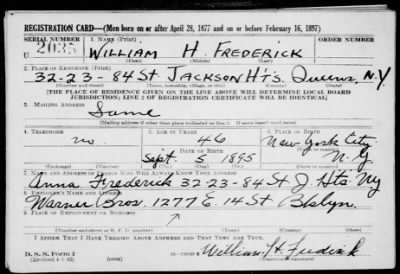 REGISTRATION CARD—(Men born on or after April 28, 1877 and on or before February 16, 1897)
SERIAL NUMBER 1. NAME (Print)
U 2035 WILLIAM H. FREDERICK
(First) (Middle) (Last)
2. PLACE OF RESIDENCE (Print)
32-23-84 St JACKSON HTS. Queens, N.Y.
(Number and street) (Town, township, village, or city) (County) (State)
[THE PLACE OF RESIDENCE GIVEN ON THE LINE ABOVE WILL DETERMINE LOCAL BOARD
JURISDICTION; LINE 2 OF REGISTRATION CERTIFICATE WILL BE IDENTICAL]
3. MAILING ADDRESS
Same
[Mailing address if other than place indicated on line 2. If same insert word same]
4. TELEPHONE 5. AGE IN YEARS 6. PLACE OF BIRTH
no 46 New York City
DATE OF BIRTH (Town or county)
Sept. 5 1895 N.Y.
(Exchange) (Number) (Mo.) (Day) (Yr.) (State or country)
7. NAME AND ADDRESS OF PERSON WHO WILL ALWAYS KNOW YOUR ADDRESS
Anna Frederick 32-23-84 St J. Hts. Ny
8. EMPLOYER'S NAME AND ADDRESS
Warner Bros. 1277 E. 14 St Bklyn.
9. PLACE OF EMPLOYMENT OR BUSINESS
(Number and street or R. F. D. number) (Town) (County) (State)
I AFFIRM THAT I HAVE VERIFIED ABOVE ANSWERS AND THAT THEY ARE TRUE.
D. S. S. Form 1 William H Frederick
(Revised 4-1-42) (over)